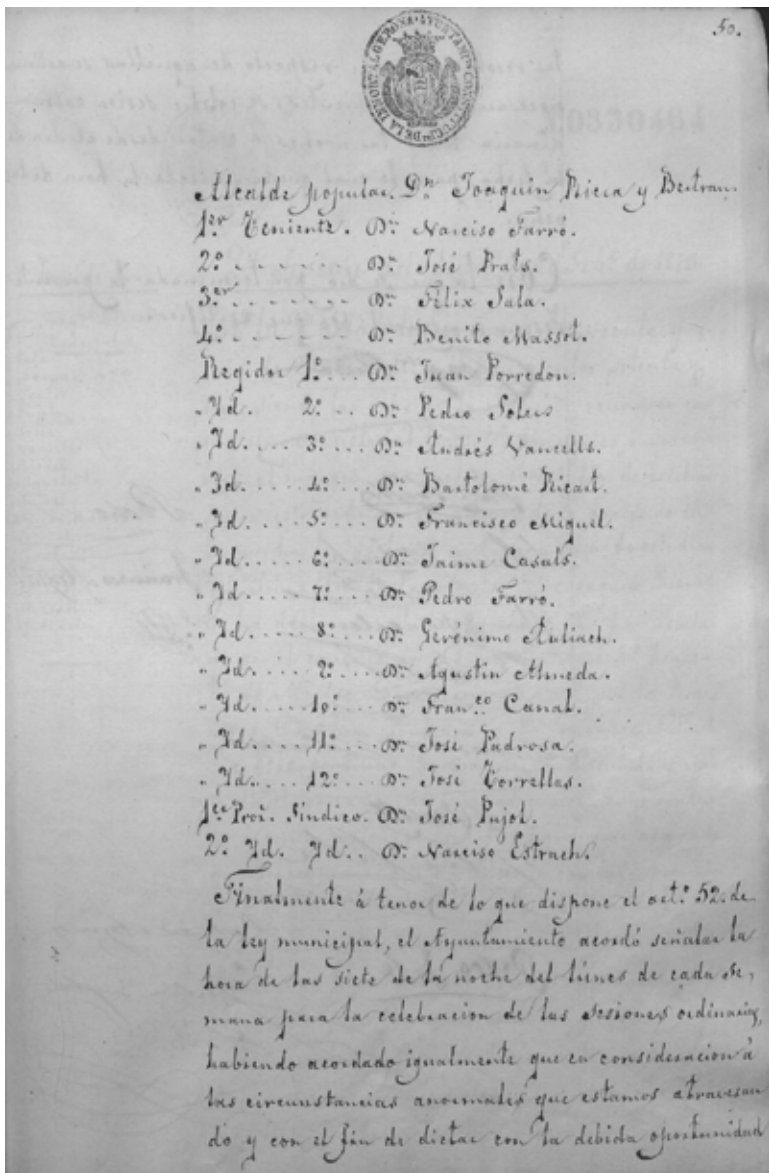 50.
AYUNTAMTO CONSTITUCL DE LA INMORTAL GERONA
Alcalde popular. Dn Joaquin Riera y Bertran.
1er Teniente. Dn Narciso Farró.
2º ....... Dn José Prats.
3er ....... Dn Félix Sala.
4º ....... Dn Benito Massot.
Regidor 1º... Dn Juan Porredon.
" Id. 2º .. Dn Pedro
" Id.... 3º... Dn Andrés Vancells.
" Id..... 4º... Dn Bartolomé Ricart.
" Id.... 5º... Dn Francisco Miquel.
" Id.... 6º... Dn Jaime Casals.
" Id.... 7º... Dn Pedro Farró.
" Id.... 8º... Dn Gerónimo
" Id..... 9º... Dn Agustin Almeda.
" Id.... 10º.. Dn Franco Canal.
" Id.... 11º... Dn José Padrosa.
" Id.... 12º... Dn José Torrellas.
1er Pror. Sindico. Dn José Pujol.
2º Id. Id.. Dn Narciso Estrach.
Finalmente á tenor de lo que dispone el artº 52. de
la ley municipal, el Ayuntamiento acordó señalar la
hora de las siete de la noche del lúnes de cada se,
mana para la celebracion de las sesiones ordinarias,
habiendo acordado igualmente que en consideracion á
las circunstancias anormales que estamos atravesan
do y con el fin de dictar con la debida oportunidad